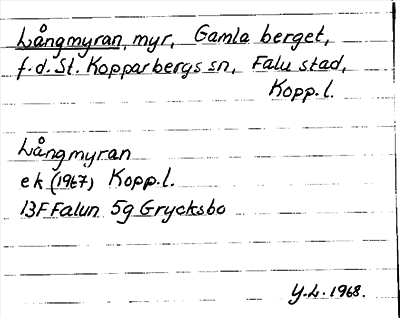 Långmyran, myr, Gamla berget,
f.d. St. Kopparbergs sn, Falu stad,
Kopp.l.
Långmyran
ek (1967) Kopp.l.
13F Falun 5g Grycksbo
Y.L. 1968.